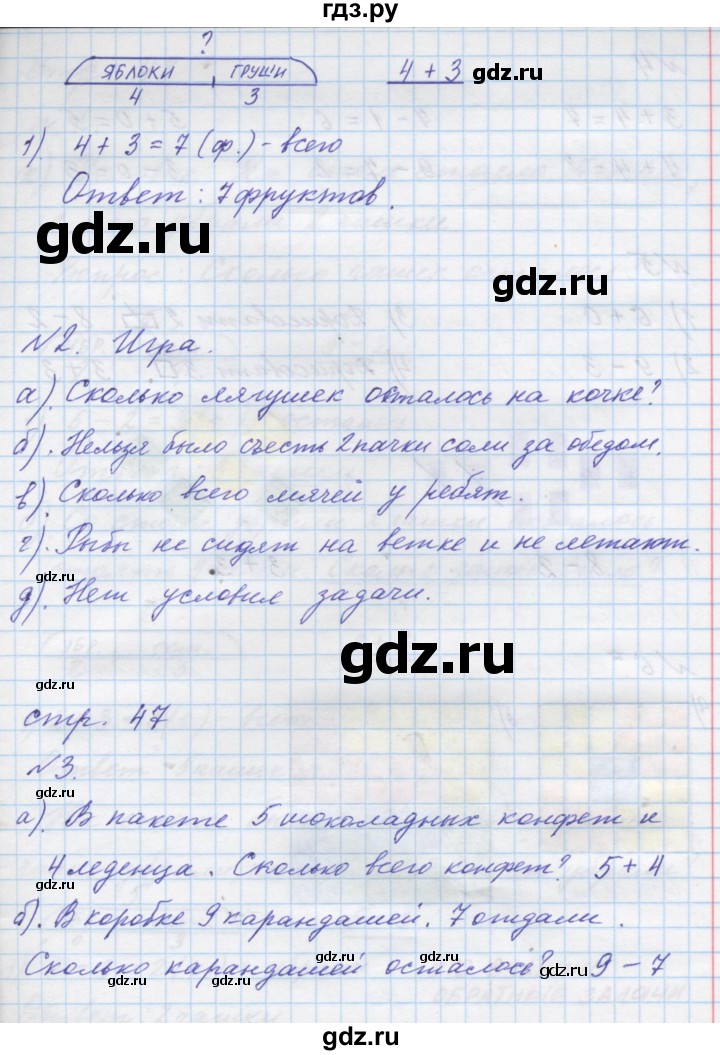 гдз.ру
?
ЯБЛОКИ ГРУШИ 4 + 3 gdz.ru
4 3
1) 4 + 3 = 7 (ф.) - всего
Ответ: 7 фруктов.
gdz.ru
gdz.ru
№2. Игра.
а). Сколько лягушек осталось на кочке?
б). Нельзя было съесть 2 пачки соли за обедом.
gdz.ru
в). Сколько всего мячей у ребят.
г). Рыбы не сидят на ветке и не летают.
gdz.ru
д). Нет условия задачи.
gdz.ru
gdz.ru
стр. 47
№3.
gdz.ru
а). В пакете 5 шоколадных конфет и
4 леденца. Сколько всего конфет? 5 + 4
gdz.ru
б). В коробке 9 карандашей. 7 отдали.
Сколько карандашей осталось? 9 - 7
gdz.ru
gdz.ru
gdz.ru